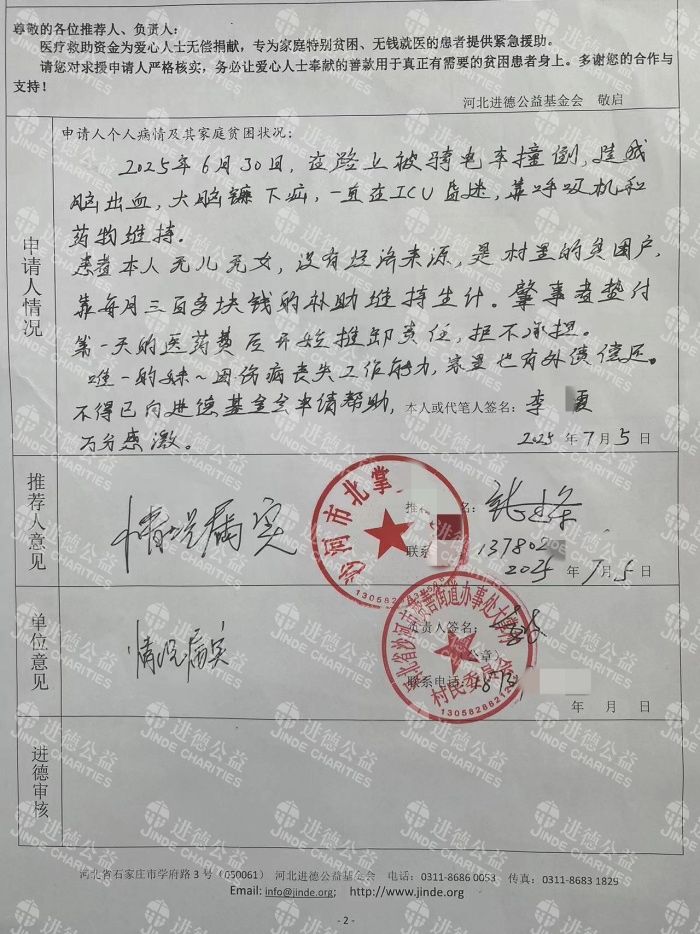 尊敬的各位推荐人、负责人：
医疗救助资金为爱心人士无偿捐献，专为家庭特别贫困、无钱就医的患者提供紧急援助。
请您对求授申请人严格核实，务必让爱心人士奉献的善款用于真正有需要的贫困患者身上。多谢您的合作与
支持！
河北进德公益基金会 敬启
申请人情况
申请人个人病情及其家庭贫困状况：
2025年6月30日，在路上被骑电车撞倒，造成
脑出血，大脑镰下疝，一直在ICU昏迷，靠呼吸机和
药物维持。
患者本人无儿无女，没有经济来源，是村里的贫困户，
靠每月三百多块钱的补助维持生计。肇事者垫付
第一天的医药费后开始推卸责任，拒不承担。
唯一的妹～因伤病丧失工作能力，家里也有外债偿还。
不得已向进德基金会申请帮助，本人或代笔人签名：李 夏
万分感激。
2025年7月5日
推荐人意见
情况属实
沙河市北掌
推 名：张
联系 137802
2025年7月5日
1305825
单位意见
情况属实
河北省沙河市 街道办事处
村民委员会
负责人签名：
（公章）
联系电话：187
年 月 日
1305828821
进德审核
河北省石家庄市学府路3号（050061） 河北进德公益基金会 电话：0311-8686 0053 传真：0311-8683 1829
Email: info@jinde.org; http://www.jinde.org
- 2 -
进德公益
JINDE CHARITIES